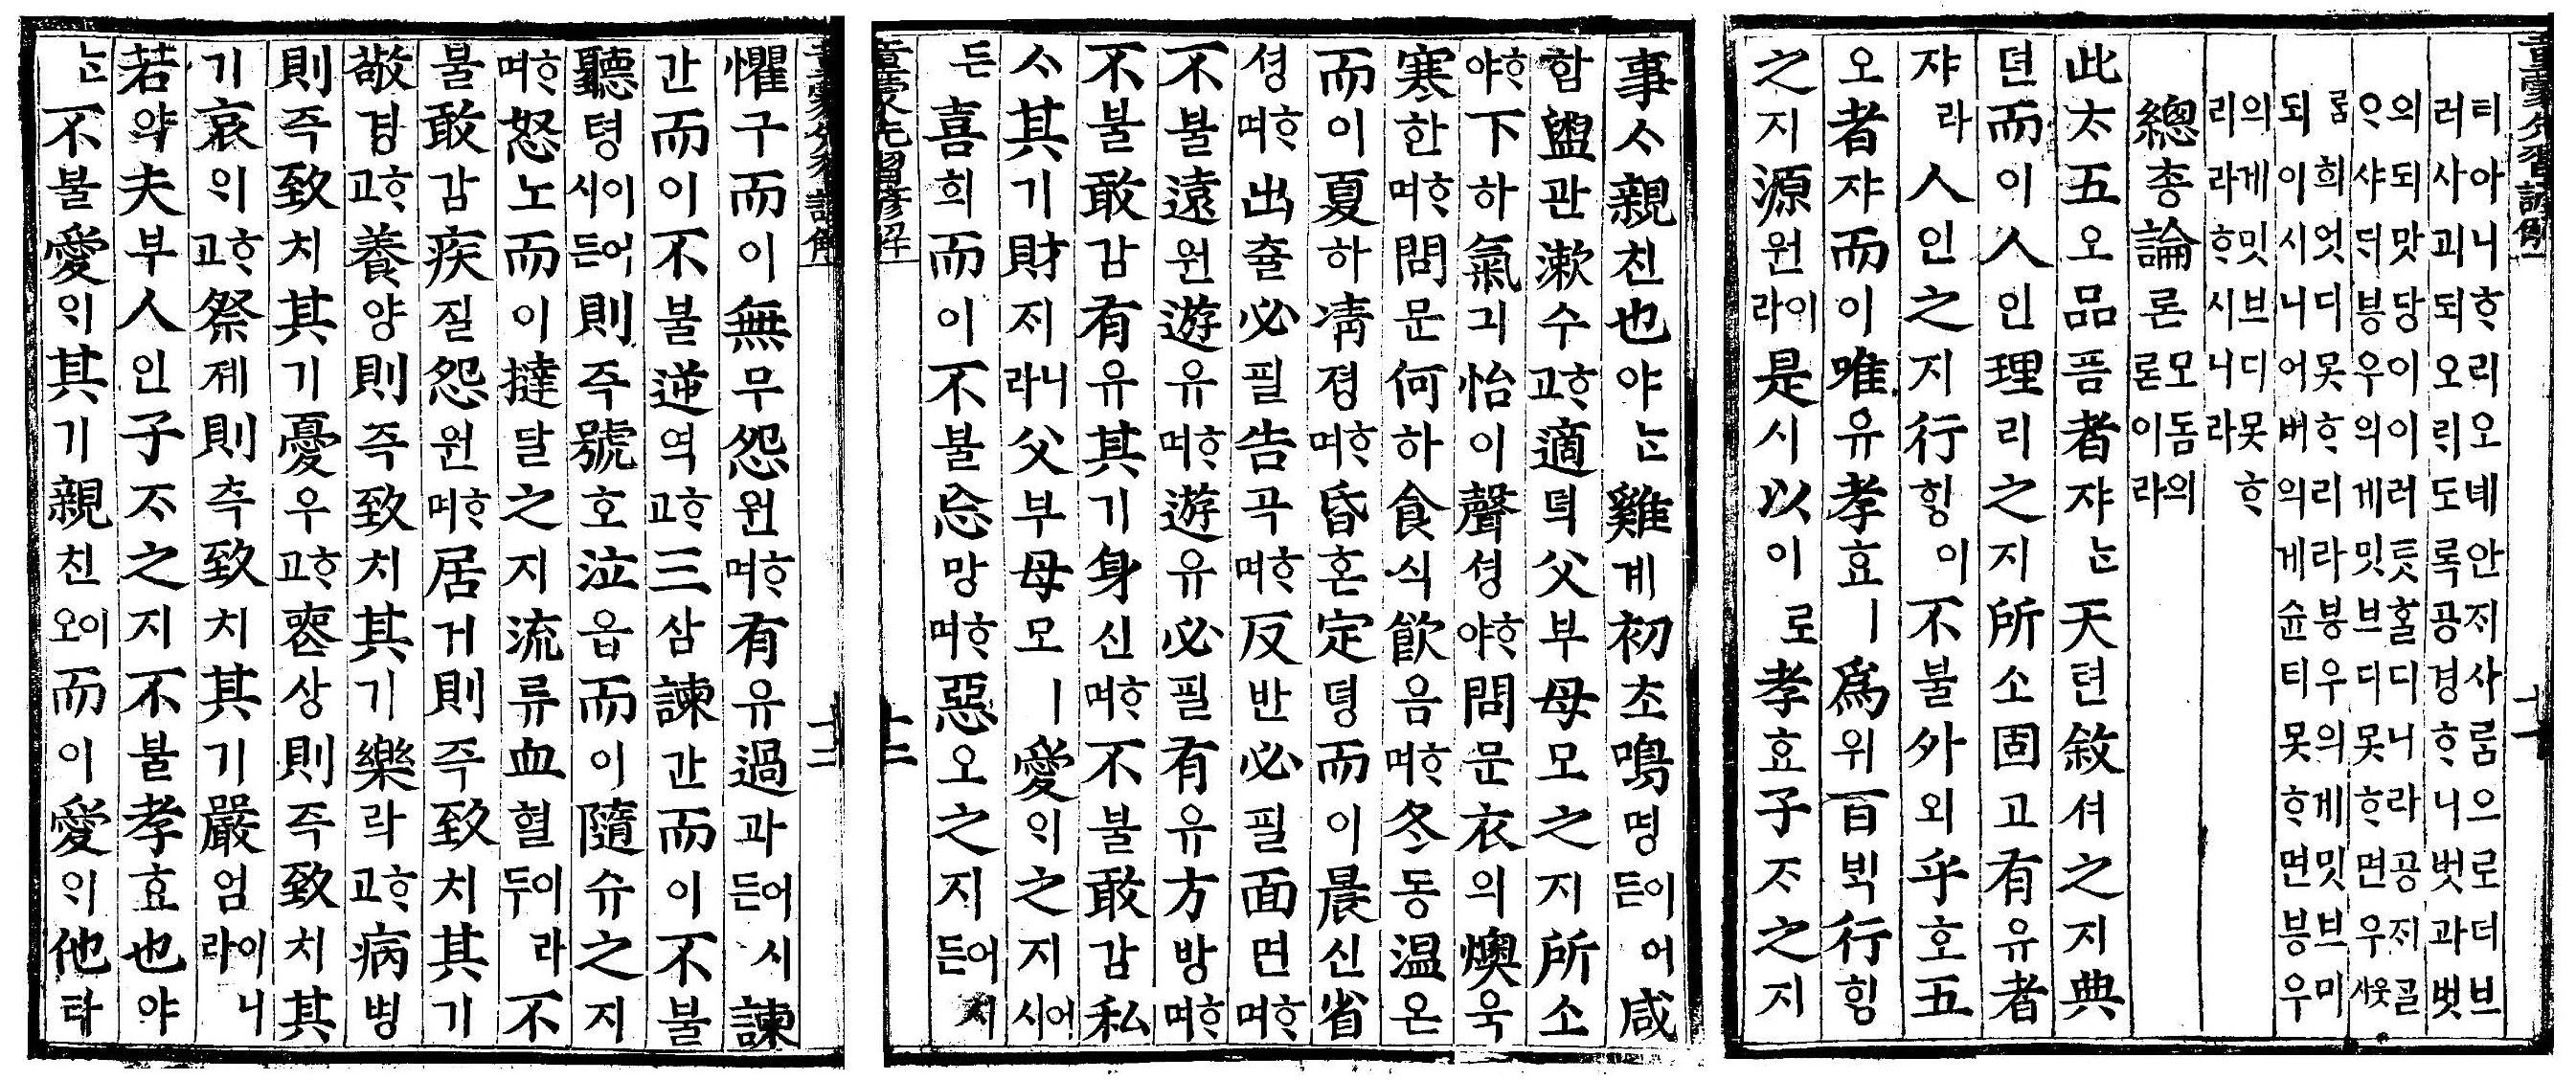 童蒙先習諺解 十一
티아니ᄒᆞ리오녜안ᄌᆡ사ᄅᆞᆷ으로더브
러사괴되오ᄅᆡ도록공경ᄒᆞ니벗과벗
의되맛당이이러ᄐᆞᆺ홀디니라공ᄌᆡᄀᆞᆯ
ᄋᆞ샤ᄃᆡ븡우의게밋브디못ᄒᆞ면우웃사
ᄅᆞᆷ희엇디못ᄒᆞ리라븡우의게밋브미
되이시니어버의게슌티못ᄒᆞ면븡우
의게밋브디못ᄒᆞ
리라ᄒᆞ시니라
總총論론모돔의론이라
此ᄎᆞ五오品픔者쟈ᄂᆞᆫ天텬敘셔之지典
뎐而이人인理리之지所소固고有유者
쟈라人인之지行ᄒᆡᆼ이不불外외乎호五
오者쟈而이唯유孝효ㅣ爲위百ᄇᆡᆨ行ᄒᆡᆼ
之지源원이라是시以이로孝효子ᄌᆞ之지
事ᄉᆞ親친也야ᄂᆞᆫ雞계初초鳴명이어든咸
함盥관漱수ᄒᆞ고適뎍父부母모之지所소
ᄒᆞ야下하氣긔怡이聲셩ᄒᆞ야問문衣의燠욱
寒한ᄒᆞ며問문何하食식飮음ᄒᆞ며冬동溫온
而이夏하凊졍ᄒᆞ며昏혼定뎡而이晨신省
셩ᄒᆞ며出츌必필告곡ᄒᆞ며反반必필面면ᄒᆞ며
不불遠원遊유ᄒᆞ며遊유必필有유方방ᄒᆞ며
不불敢감有유其기身신ᄒᆞ며不불敢감私
ᄉᆞ其기財ᄌᆡ니라父부母모ㅣ愛ᄋᆡ之지어시
든喜희而이不불忘망ᄒᆞ며惡오之지어든시
童蒙先習諺解 十二
童蒙先習諺解 十二
懼구而이無무怨원ᄒᆞ며有유過과어든시諫
간而이不불逆역ᄒᆞ고三삼諫간而이不불
聽텽이시어든則즉號호泣읍而이隨슈之지
ᄒᆞ며怒노而이撻달之지流류血혈이두라不
불敢감疾질怨원ᄒᆞ며居거則즉致치其기
敬경ᄒᆞ고養양則즉致치其기樂락ᄒᆞ고病병
則즉致치其기憂우ᄒᆞ고喪상則즉致치其
기哀ᄋᆡᄒᆞ고祭졔則즉致치其기嚴엄이라니
若약夫부人인子ᄌᆞ之지不불孝효也야
ᄂᆞᆫ不불愛ᄋᆡ其기親친이오而이愛ᄋᆡ他타